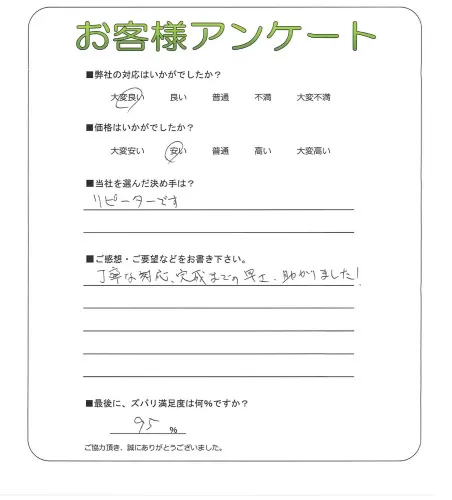 お客様アンケート
■弊社の対応はいかがでしたか？
大変良い 良い 普通 不満 大変不満
■価格はいかがでしたか？
大変安い 安い 普通 高い 大変高い
■当社を選んだ決め手は？
リピーターです
■ご感想・ご要望などをお書き下さい。
丁寧な対応、完成までの早さ、助かりました!
■最後に、ズバリ満足度は何%ですか？
95 %
ご協力頂き、誠にありがとうございました。